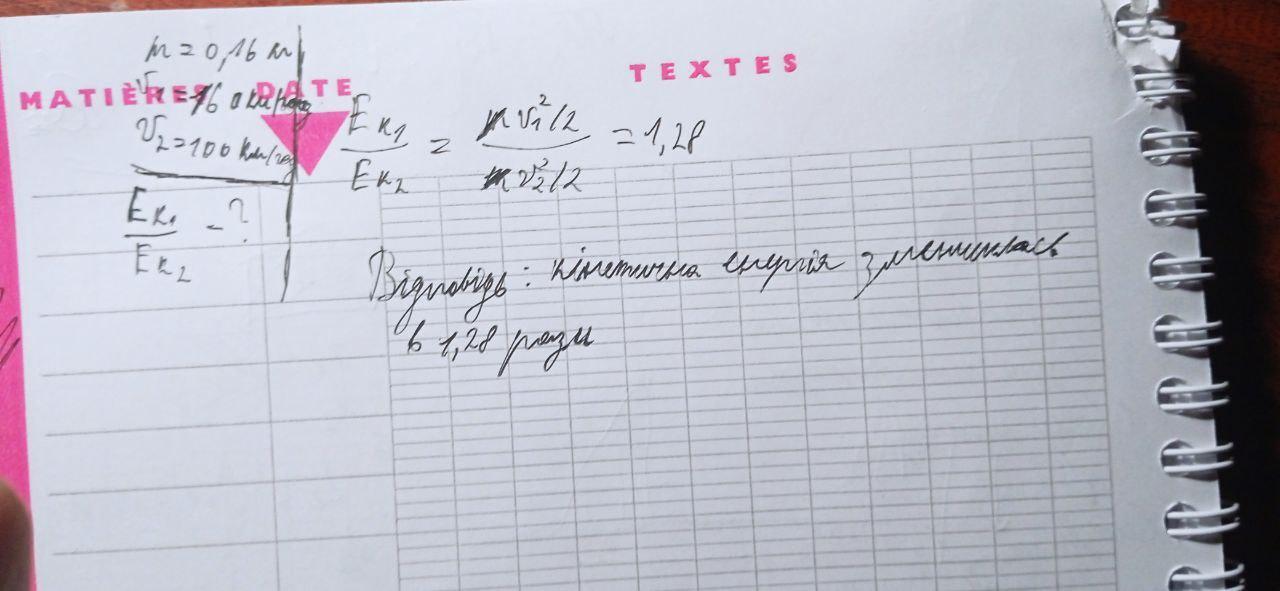 m = 0,16 м
MATIÈRES DATE
TEXTES
= 160 км/год
V₂ = 100 км/год
Eк₁/Eк₂ - ?
Eк₁/Eк₂ = mV₁²/2 / mV₂²/2 = 1,28
Відповідь: кінетична енергія зменшилась
в 1,28 рази